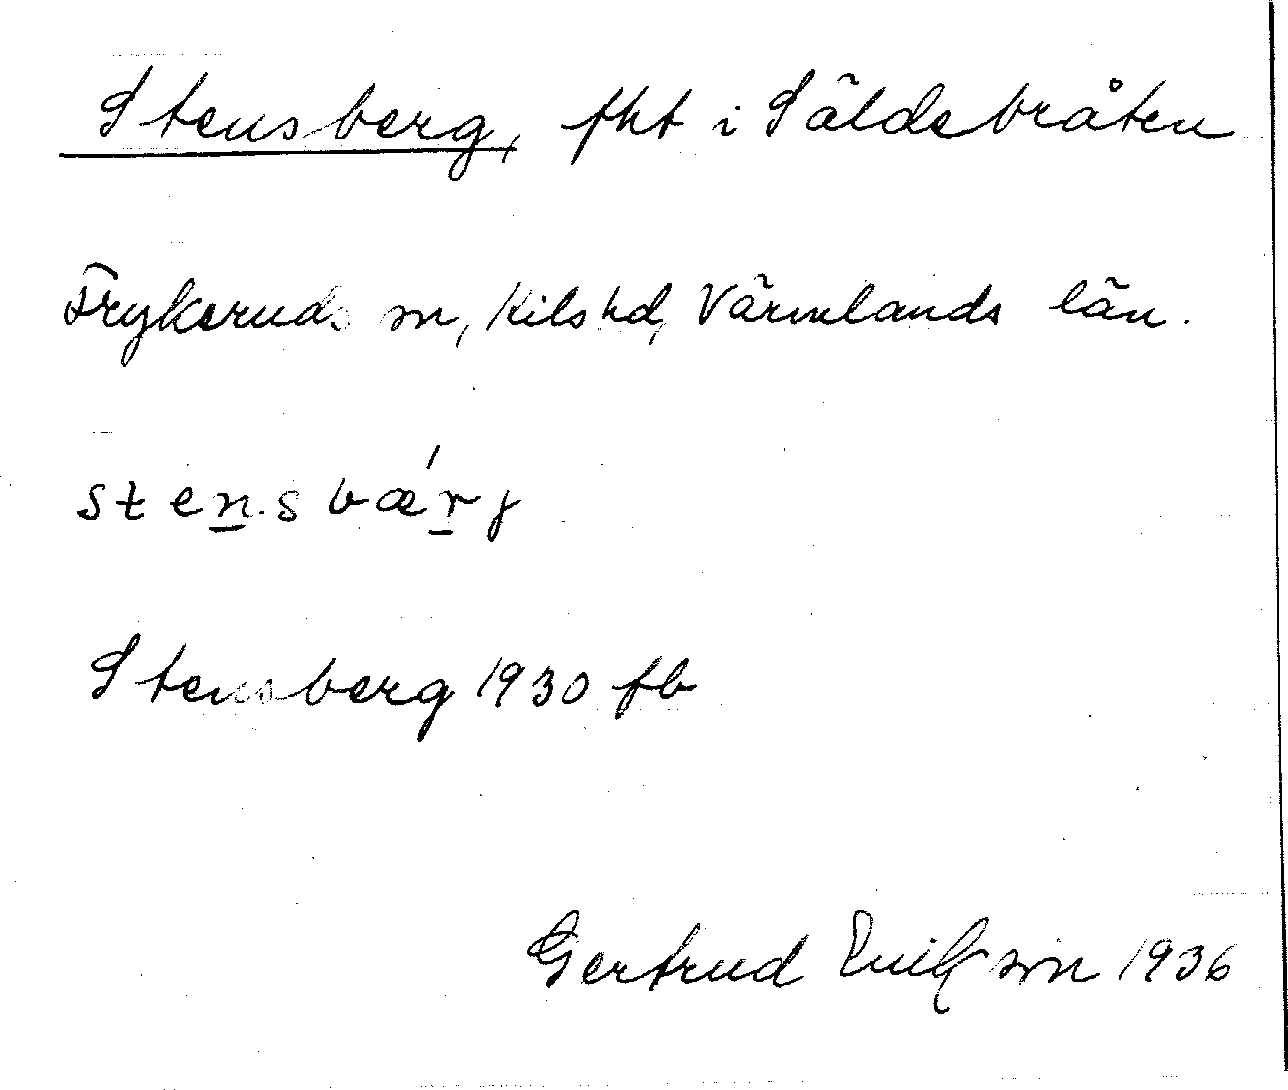 Stensberg, fht i Säldebråten
Frykeruds sn, Kils hd, Värmlands län.
stensbæ´rj
Stensberg 1930 fb
Gertrud Emilsson 1936